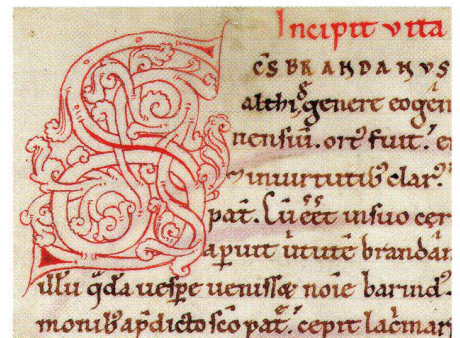 Incipit vita
S
c̄s BRANDANVS
althi, genere eogen
nensiū. ortꝰ fuit. er
inuirtutibꝰ clarꝰ.
pat̄. Cū eēt insuo cer
apuit ūtutē brandan
illū q̄dā uesp̄e uenisset noīe barindꝰ.
monibꝰ ap̄dicto sc̄o pat̄. cepit lac̄mari